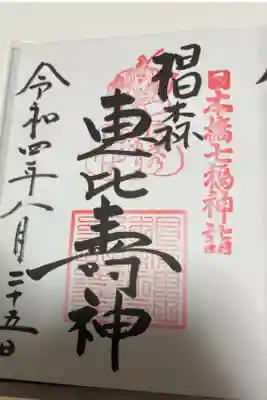 日本橋七福神詣
椙森
恵比寿神
令和四年八月二十五日